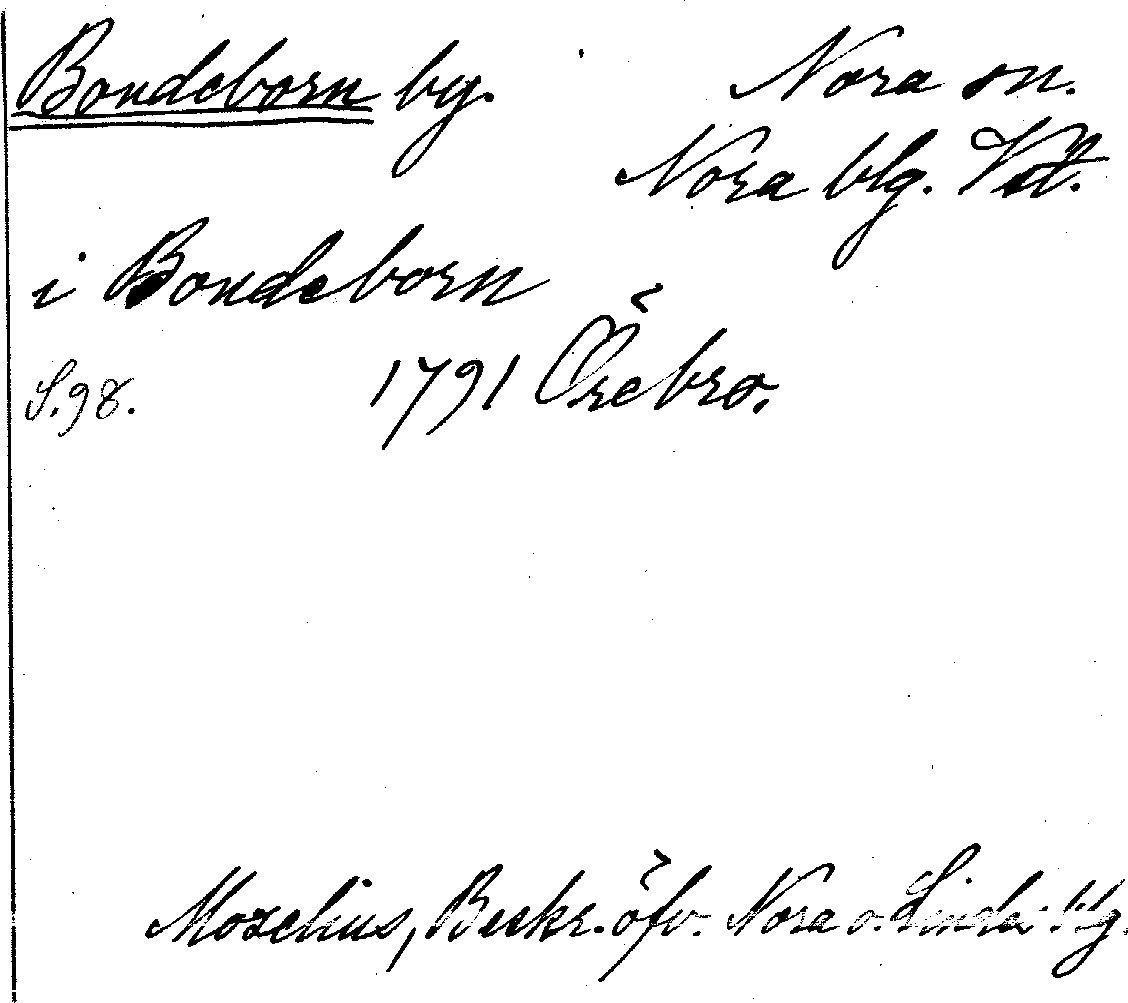 Bondeborn by. Nora sn.
Nora blg. Vstl.
i Bondeborn
S. 98. 1791 Örebro.
Moselius, Beskr. öfv. Nora o. Linde blg.